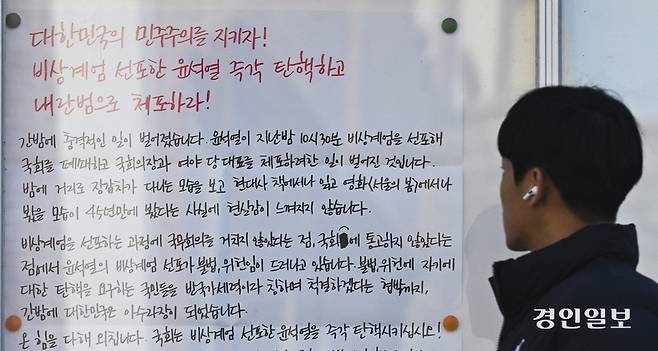 대한민국의 민주주의를 지키자!
비상계엄 선포한 윤석열 즉각 탄핵하고
내란범으로 체포하라!
간밤에 충격적인 일이 벌어졌습니다. 윤석열이 지난밤 10시 30분 비상계엄을 선포해
국회를 폐쇄하고 국회의장과 여야 당 대표를 체포하려한 일이 벌어진 것입니다.
밤에 거리로 장갑차가 다니는 모습을 보고 현대사 책에서나 읽고 영화(서울의 봄)에서나
봤을 모습이 45년만에 봤다는 사실에 현실감이 느껴지지 않습니다.
비상계엄을 선포하는 과정에 국무회의를 거치지 않았다는 점, 국회에 통고하지 않았다는
점에서 윤석열의 비상계엄 선포가 불법, 위헌임이 드러나고 있습니다. 불법, 위헌에 자기에
대한 탄핵을 요구하는 국민들을 반국가세력이라 칭하며 척결하겠다는 협박까지,
간밤에 대한민국은 아수라장이 되었습니다.
온 힘을 다해 외칩니다. 국회는 비상계엄 선포한 윤석열을 즉각 탄핵시키십시오!
경인일보